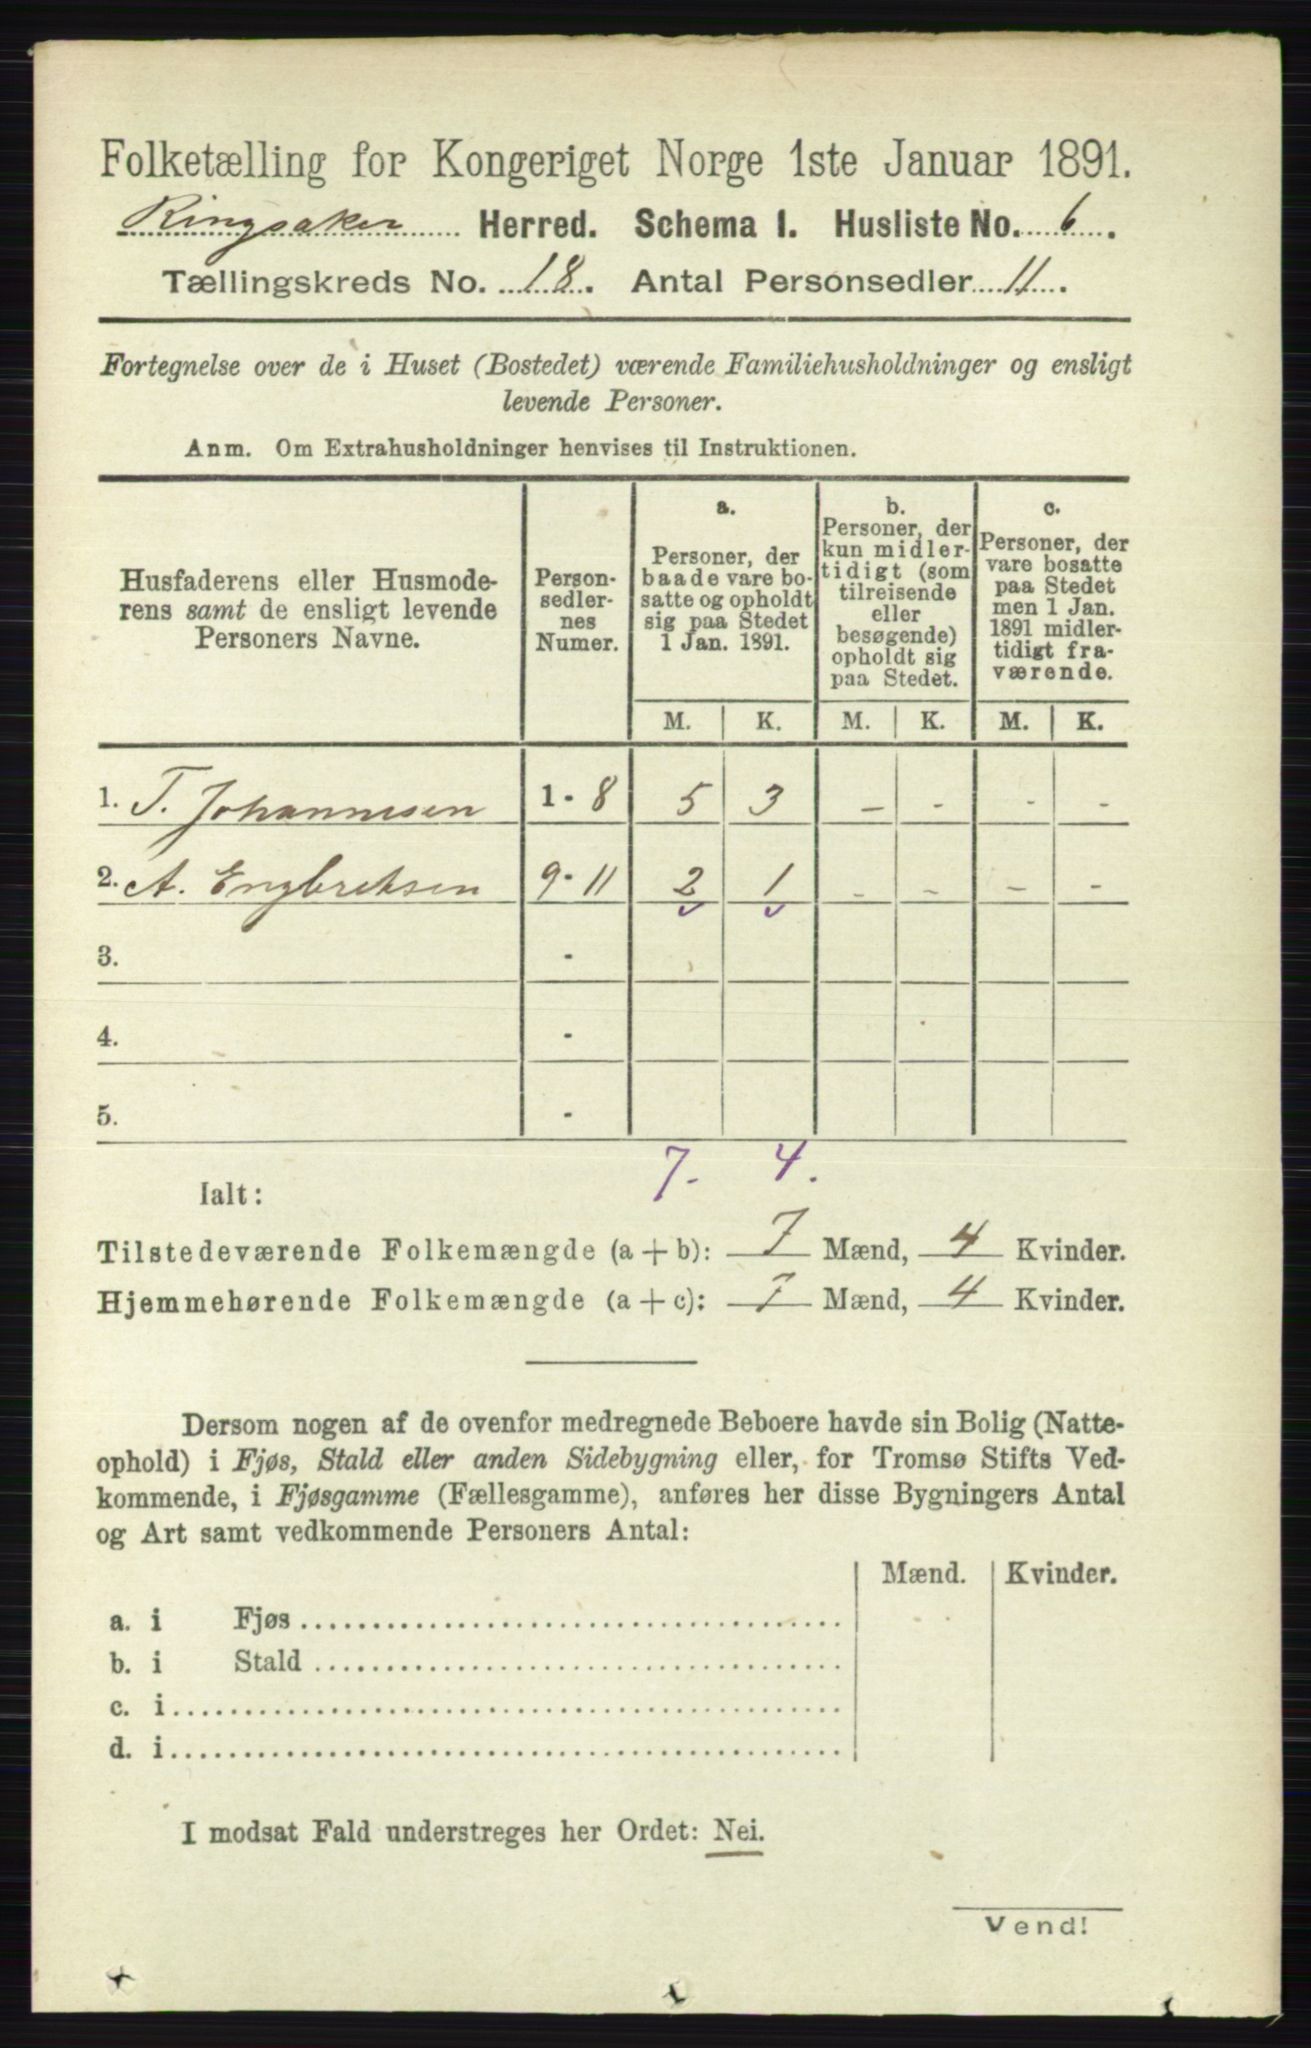 Folketælling for Kongeriget Norge 1ste Januar 1891.
Ringsaker Herred. Schema I. Husliste No. 6.
Tællingskreds No. 18. Antal Personsedler 11.
Fortegnelse over de i Huset (Bostedet) værende Familiehusholdninger og ensligt
levende Personer.
Anm. Om Extrahusholdninger henvises til Instruktionen.
Husfaderens eller Husmode-
rens samt de ensligt levende
Personers Navne.
Person-
sedler-
nes
Numer.
a.
Personer, der
baade vare bo-
satte og opholdt
sig paa Stedet
1 Jan. 1891.
b.
Personer, der
kun midler-
tidigt (som
tilreisende
eller
besøgende)
opholdt sig
paa Stedet.
c.
Personer, der
vare bosatte
paa Stedet
men 1 Jan.
1891 midler-
tidigt fra-
værende.
M. K. M. K. M. K.
1. T. Johannesen 1 - 8 5 3 - - - -
2. A. Engbretsen 9 - 11 2 1 - - - -
3. -
4. -
5. -
7. 4.
Ialt:
Tilstedeværende Folkemængde (a + b): 7 Mænd, 4 Kvinder.
Hjemmehørende Folkemængde (a + c): 7 Mænd, 4 Kvinder.
Dersom nogen af de ovenfor medregnede Beboere havde sin Bolig (Natte-
ophold) i Fjøs, Stald eller anden Sidebygning eller, for Tromsø Stifts Ved-
kommende, i Fjøsgamme (Fællesgamme), anføres her disse Bygningers Antal
og Art samt vedkommende Personers Antal:
Mænd. Kvinder.
a. i Fjøs
b. i Stald
c. i
d. i
I modsat Fald understreges her Ordet: Nei.
Vend!